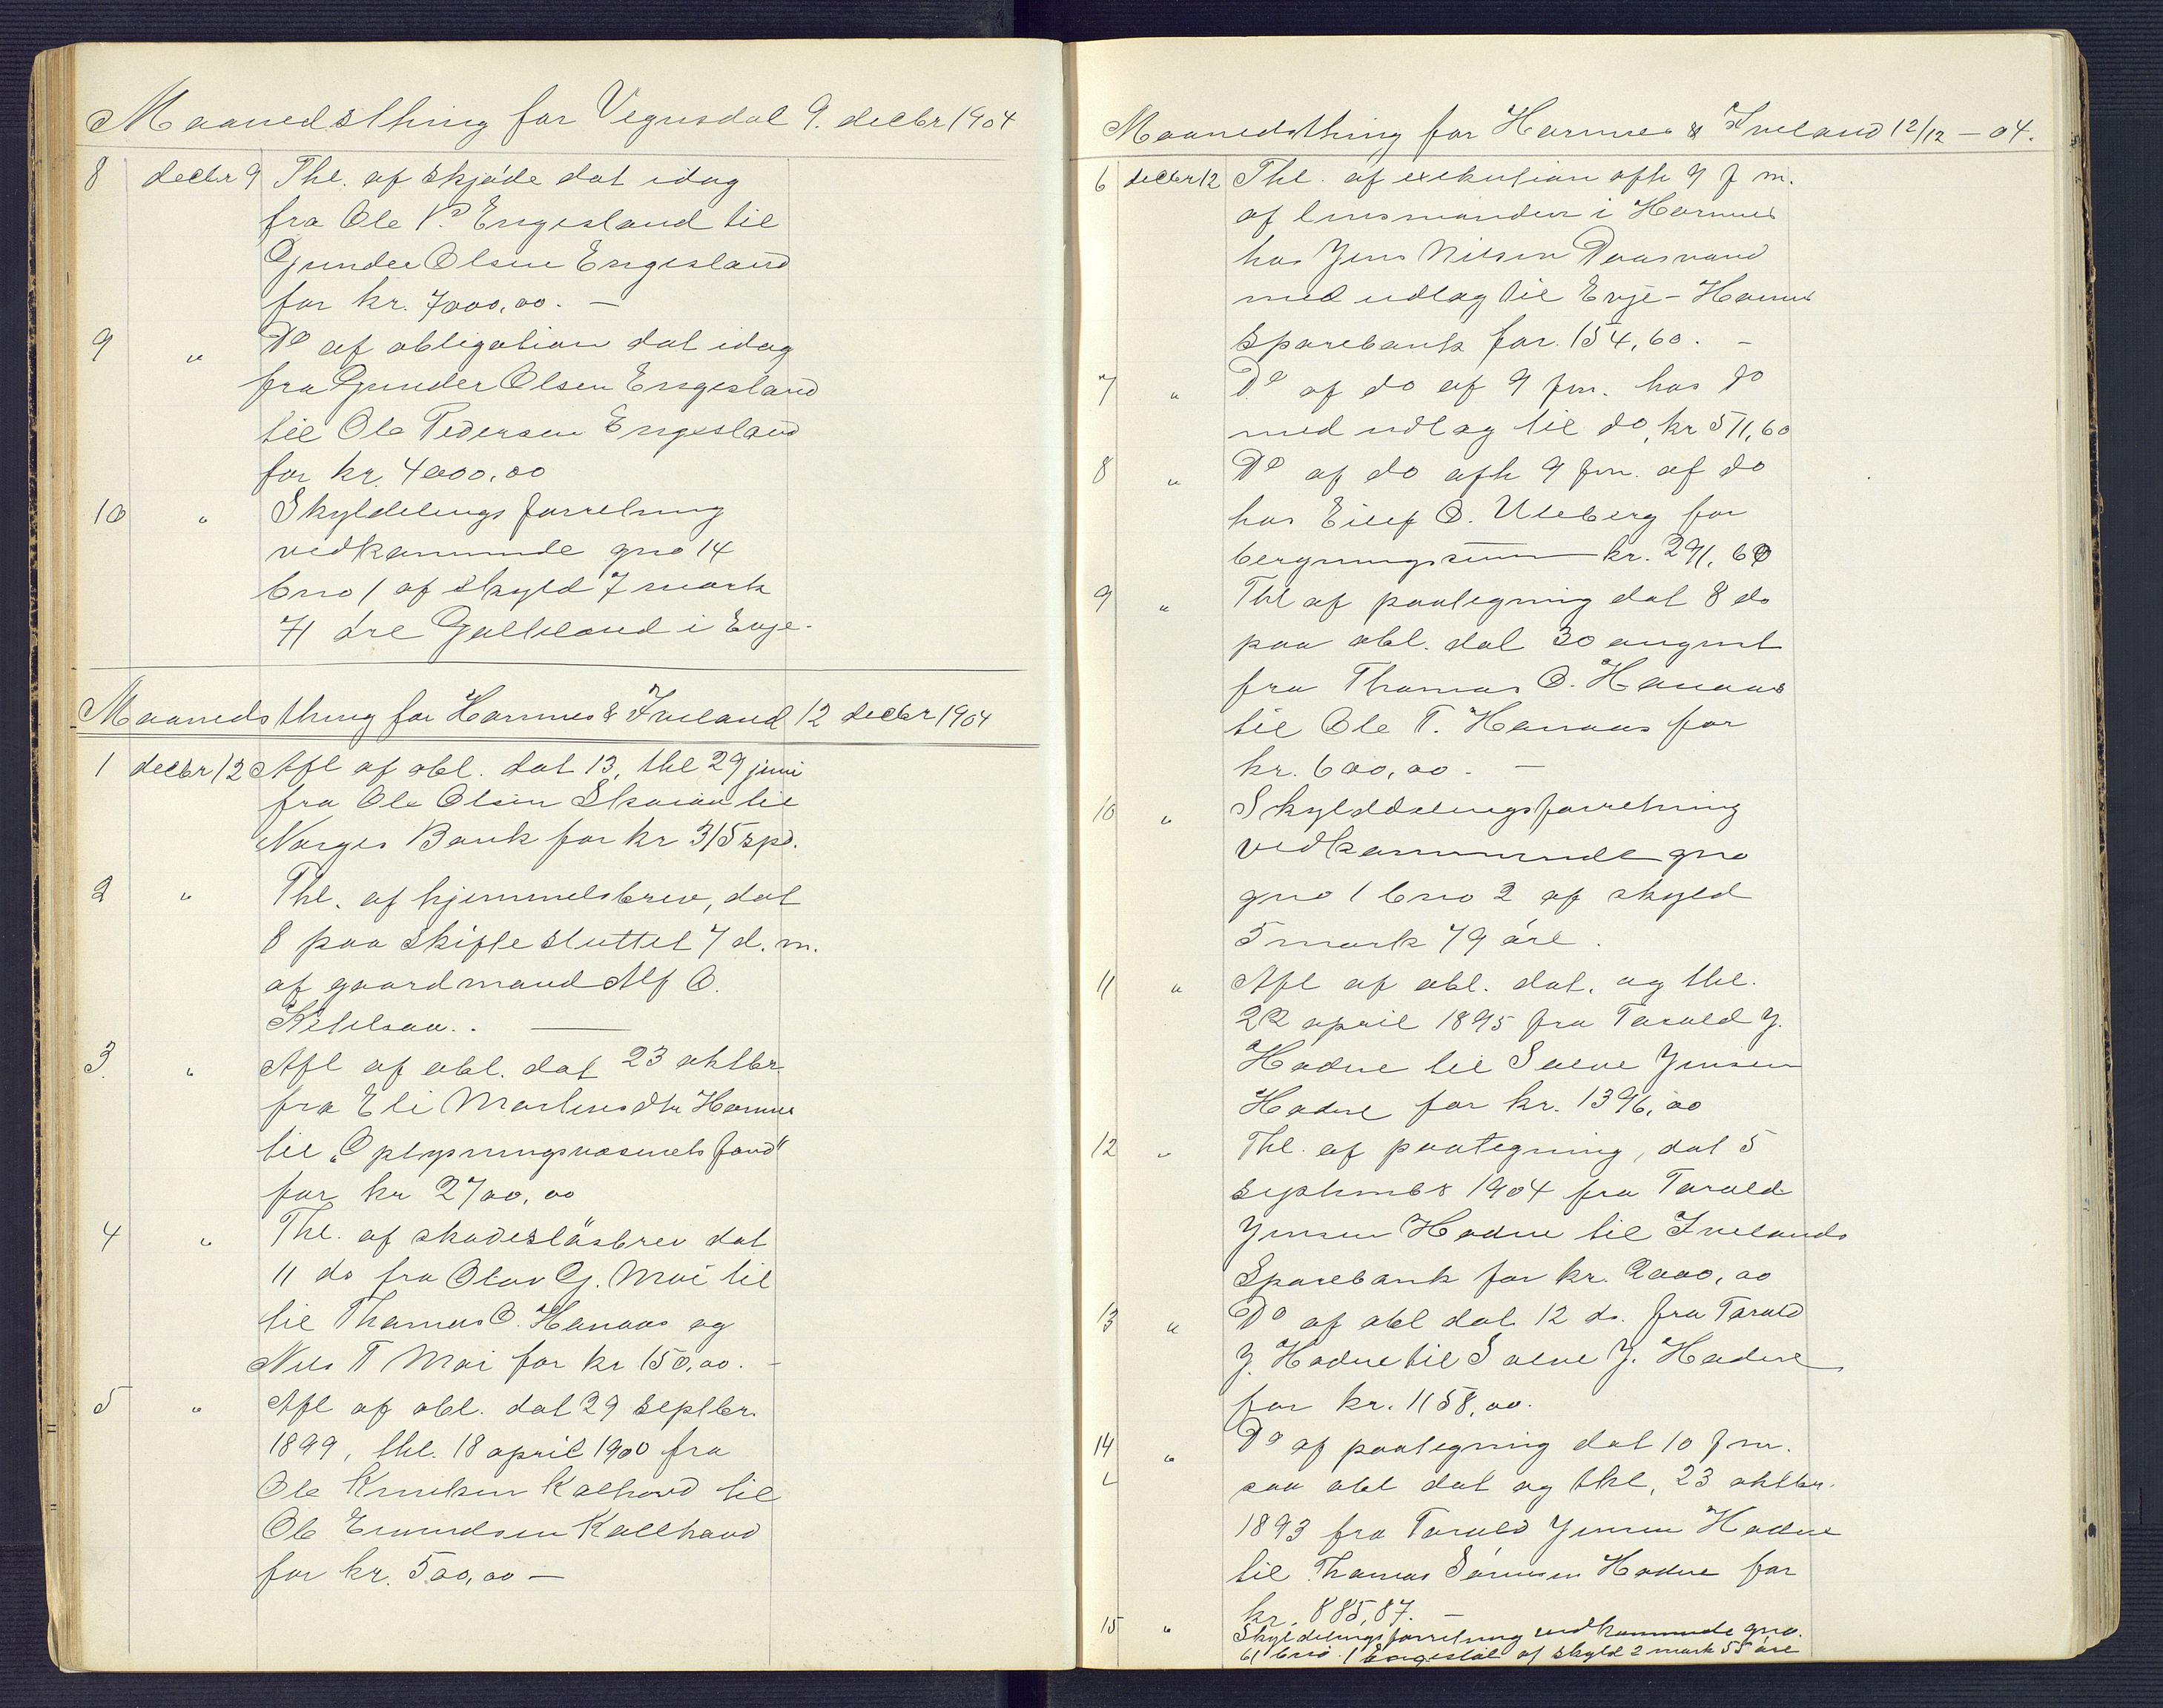 Maanedsthing for Vegusdal 9. decbr 1904
8 decbr 9 Thl. af skjøde dat idag
fra Ole P. Engesland til
Gunder Olsen Engesland
for kr. 7000,00. —
9 " Do af obligation dat idag
fra Gunder Olsen Engesland
til Ole Pedersen Engesland
for kr. 4000,00
10 " Skyldelingsforretning
vedkommende gno 14
bno 1 af skyld 7 mark
71 øre Galteland i Evje.
Maanedsthing for Hornnes & Iveland 12 decbr 1904
1 decbr 12 Afl af obl. dat 13, thl 29 juni
fra Ole Olsen til
Norges Bank for kr 315 spd.
2 " Thl. af hjemmelsbrev, dat
8 paa skifte sluttet 7 d. m.
af gaardmand Alf O.
Ketelsaa. . —
3 " Afl af obl. dat 23 oktbr
fra Eli Martinsdtr Hornnes
til "Oplysningsvæsenets fond"
for kr 2700,00
4 " Thl. af skadesløsbrev dat
11 do fra Olav G. Moi til
til Thomas O. Hanaas og
Nils T Moi for kr 150,00. -
5 " Afl af obl. dat 29 septbr.
1899, thl. 18 april 1900 fra
Ole Knutsen Kalhovd til
Ole Emundsen Kallhovd
for kr. 500,00 —
Maanedsthing for Hornnes & Iveland 12/12 – 04.
6 decbr 12 Thl. af exekution afh 9 f m.
af lensmanden i Hornnes
hos Jens Nilsen Paasvand
med udlag til Evje-Hornnes
sparebank for 154,60. -
7 " Do af do af 9 fm. hos do
med udlag til do, kr 511,60
8 " Do af do afh 9 fm. af do
hos Eilef O. Uleberg for
bergningssum kr. 291,60
9 " Thl af paategning dat 8 do
paa obl. dat 30 august
fra Thomas O. Hanaas
til Ole T. Hanaas for
kr. 600,00. —
10 " Skylddelingsforretning
vedkommende gno
gno 1 bno 2 af skyld
5 mark 79 øre.
11 " Afl af obl. dat. og thl.
22 april 1895 fra Tarald J.
Hodne til Salve Jensen
Hodne for kr. 1396,00
12 " Thl. af paategning, dat 5
septembr 1904 fra Tarald
Jensen Hodne til Ivelands
Sparebank for kr. 2000,00
13 " Do af obl dat 12 ds. fra Tarald
J. Hodne til Salve J. Hodne
for kr. 1158,00.
14 " Do af paategning dat 10 f m.
paa obl dat og thl, 23 oktbr.
1893 fra Tarald Jensen Hodne
til Thomas Sørensen Hodne for
kr. 885,87. —
15 " Skyldelingsforretning vedkommende gno.
61 bno. 1 af skyld 2 mark 55 øre